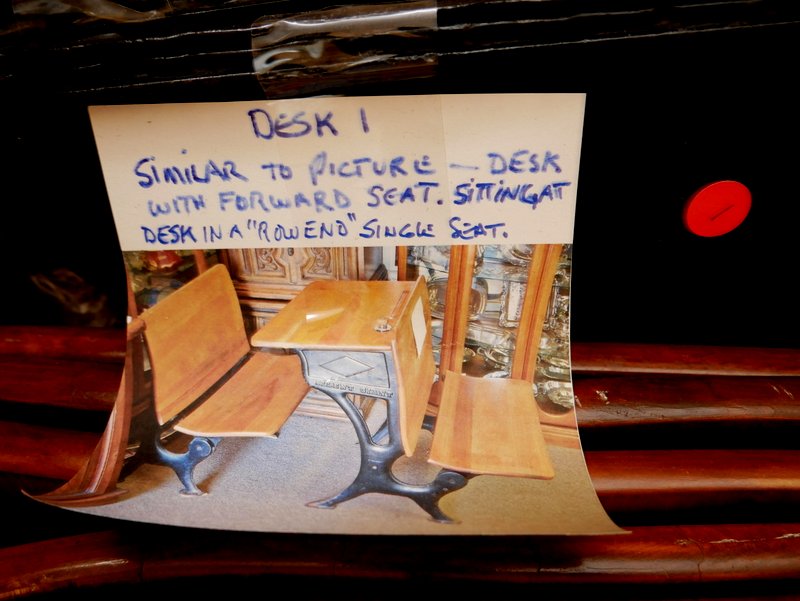 DESK 1
SIMILAR TO PICTURE — DESK
WITH FORWARD SEAT. SITTING AT
DESK IN A "ROW END" SINGLE SEAT.